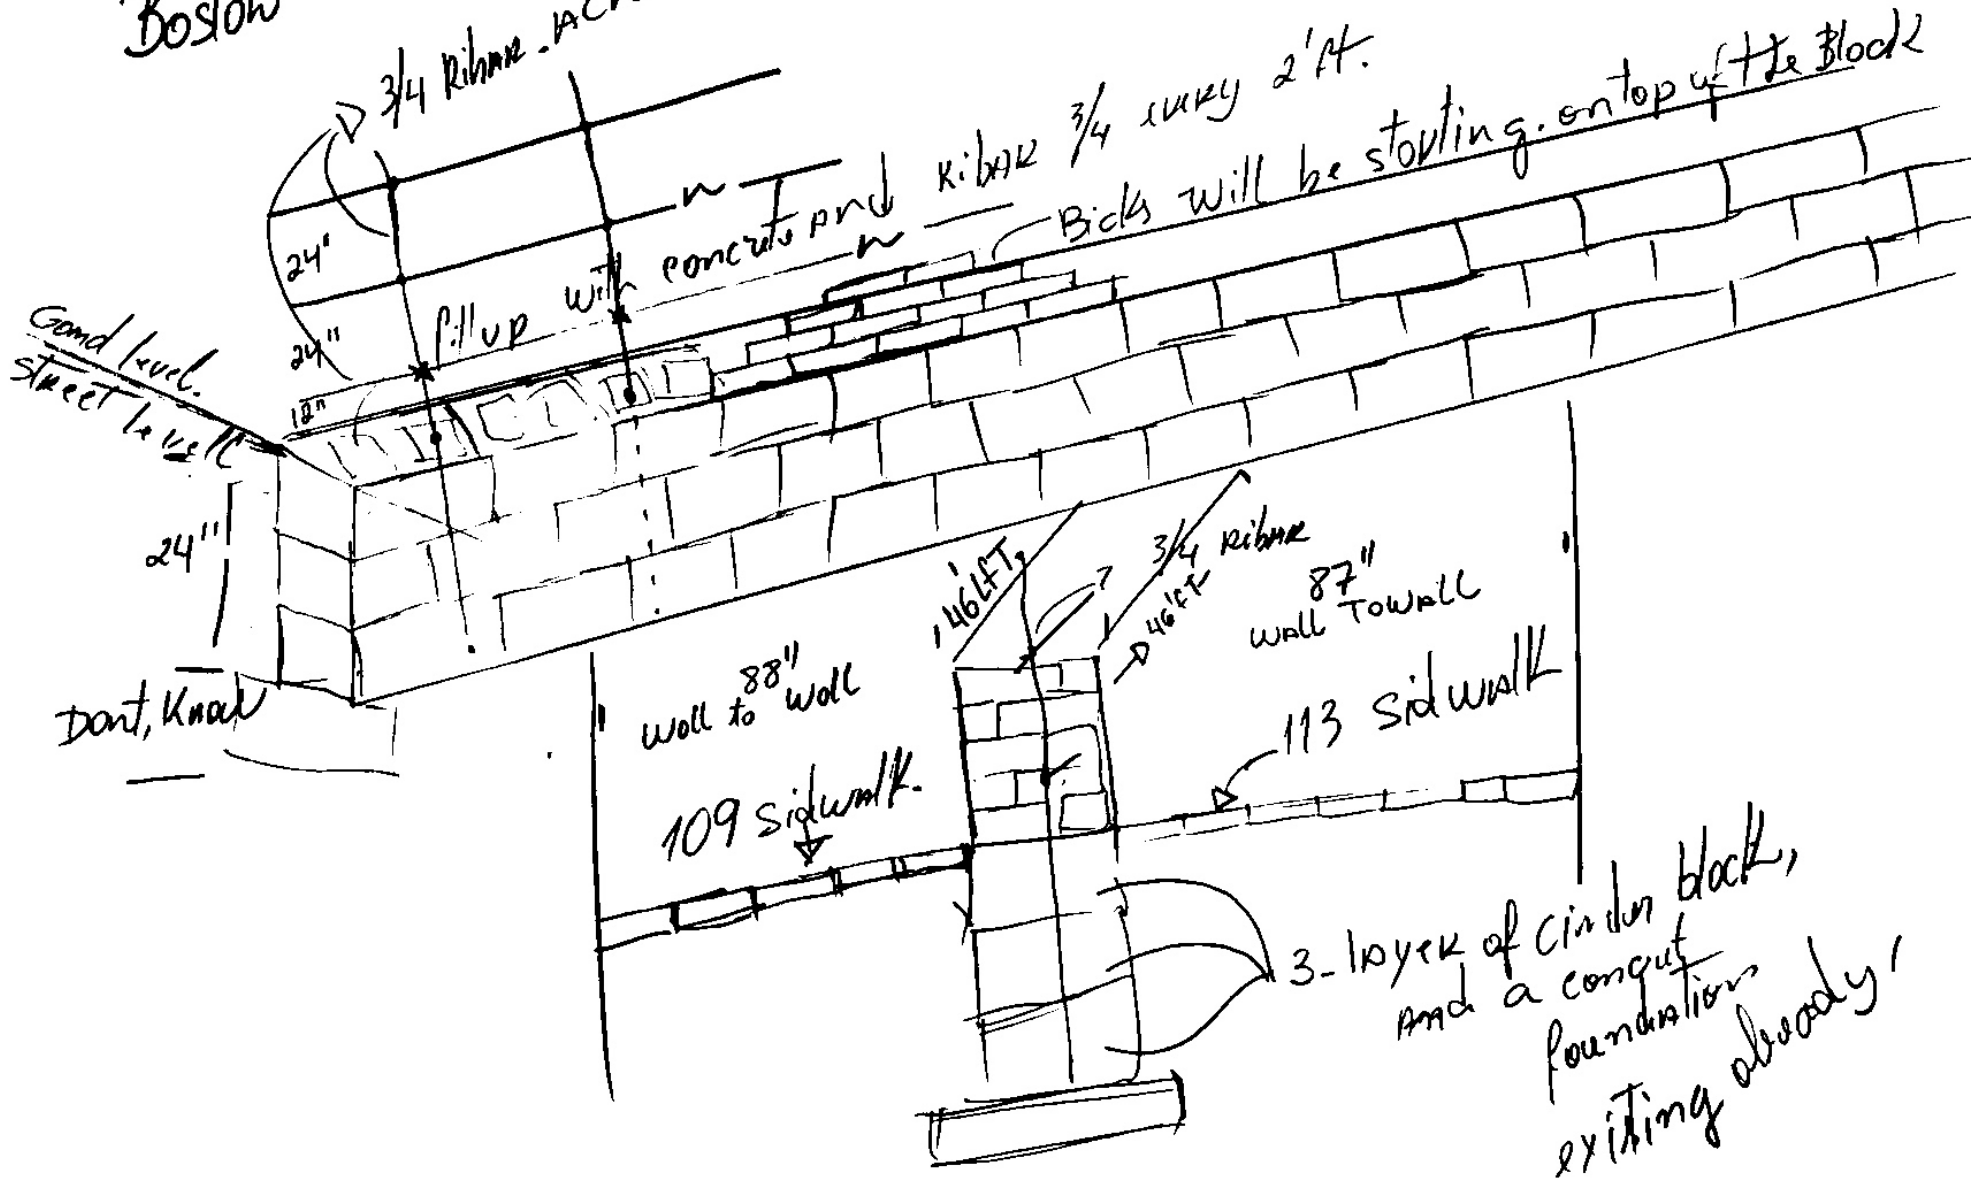 Boston
3/4 Ribar.
fill up with concrete and Ribar 3/4 every 2'ft.
Bicks will be starting. on top of the Block
24"
24"
12"
Gornd level.
street level
24"
Dont, Know
46'LFT.
?
3/4 Ribar
46'FT
88"
wall to wall
87"
wall Towall
109 sidwalk.
113 sidwalk
3-layer of cindar block,
and a
foundation
exiting already,